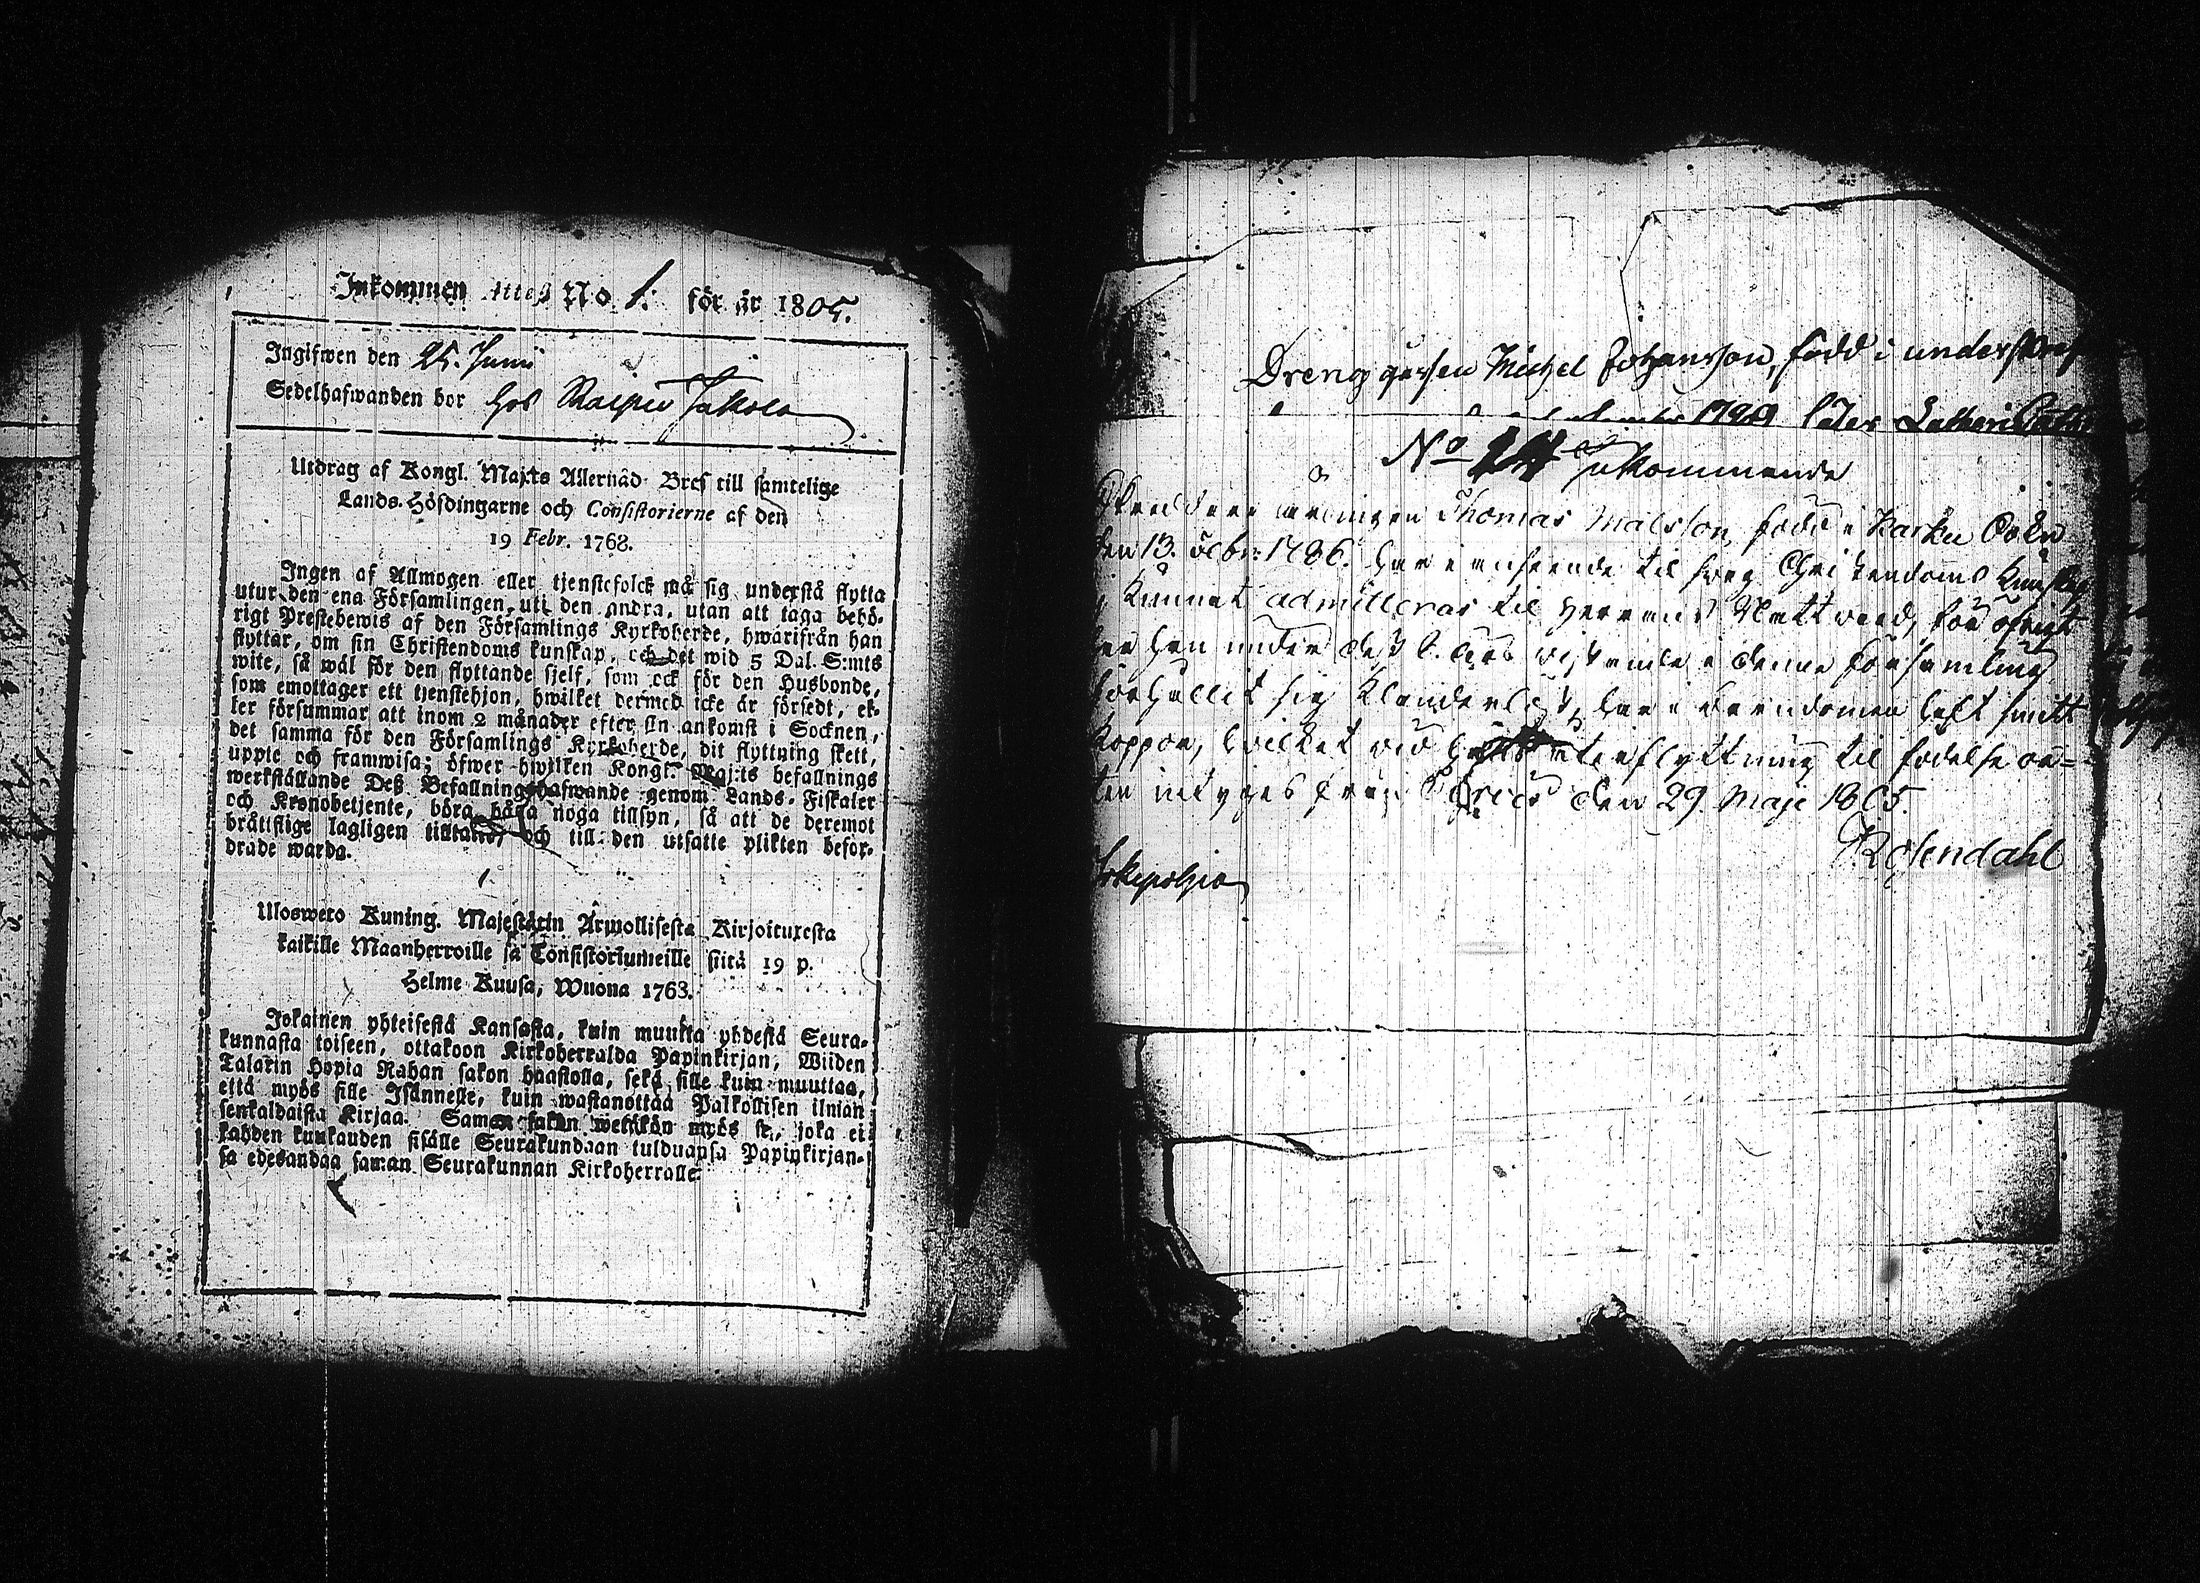 Inkommen Attest No 1. för år 1805.
Ingifwen den 25. Junii
Sedelhafwanden bor hos
Utdrag af Kongl. Maj:ts Allernåd. Bref till samtelige
Lands-Höfdingarne och Consistorierne af den
19 Febr. 1768.
Ingen af Allmogen eller tjenstefolck må sig understå flytta
utur den ena Församlingen, uti den andra, utan att taga behö-
rigt Prestebewis af den Församlings Kyrkoherde, hwarifrån han
flyttar, om sin Christendoms kunskap, och det wid 5 Dal. S:mts
wite, så wäl för den flyttande sjelf, som ock för den Husbonde,
som emottager ett tjenstehjon, hwilket dermed icke är försedt, el-
ler försummar att inom 2 månader efter sin ankomst i Socknen,
det samma för den Församlings Kyrkoherde, dit flyttning skett,
uppte och framwisa; öfwer hwilken Kongl. Maj:ts befallnings
werkställande Deß Befallningshafwande genom Lands-Fiskaler
och Kronobetjente, böra hålla noga tillsyn, så att de deremot
bråttslige lagligen tilltalas och till den utsatte plikten befor-
drade warda.
Ulosweto Kuning. Majestätin Armollisesta Kirjoituxesta
kaikille Maanherroille ja Consistoriumeille siitä 19 p.
Helme Kuusa, Wuona 1768.
Jokainen yhteisestä Kansasta, kuin muutta yhdestä Seura-
kunnasta toiseen, ottakoon Kirkoherralda Papinkirjan, Wiiden
Talarin Hopia Rahan sakon haastolla, sekä sille kuin muuttaa,
että myös sille Isännelle, kuin wastanottaa Palkollisen ilman
senkaldaista Kirjaa. Saman sakon wetäkön myös se, joka ei
kahden kuukauden sisälle Seurakundaan tulduansa Papinkirjan-
sa edesandaa saman Seurakunnan Kirkoherralle.
Drengen Michel Johansson, född i
1789
No 14 Inkommende
Thomas Matsson, född i Karku Sokn
den 13. 1786. har i anseende til sin Christendoms Kunskap
Kunnat admitteras til Herrans Nattvard, för öfrigt
har han under vistande i denne församling
förhållit sig Klanderlöst, har i barndomen haft smitt
koppor, hvilket vid återflyttning til födelse or-
ten intygas från den 29 Maji 1805.
Rosendahl